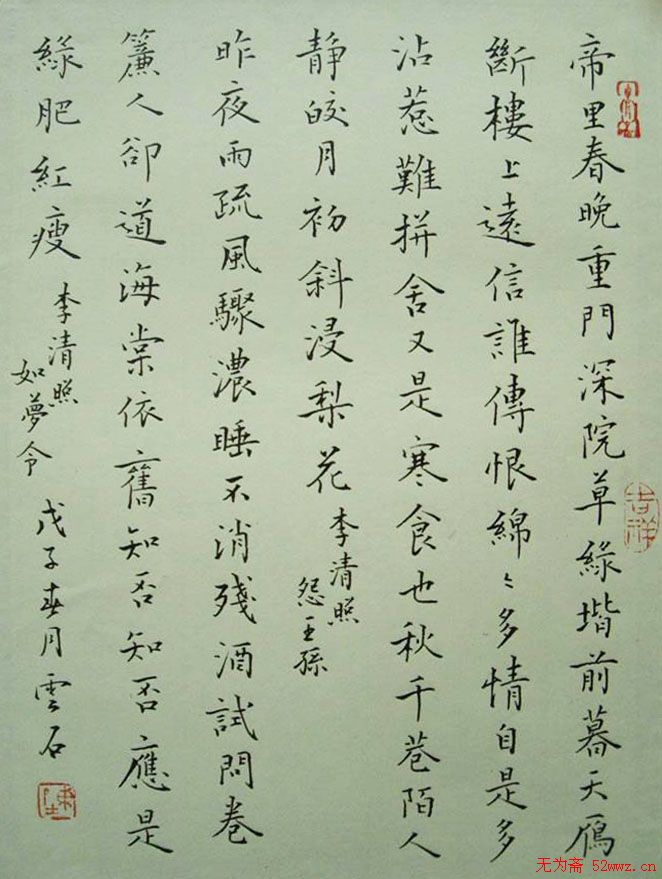 帝里春晚重門深院草緑堦前暮天鴈
斷樓上遠信誰傳恨綿〻多情自是多
沾惹難拚舍又是寒食也秋千巷陌人
静皎月初斜浸梨花
李清照
怨王孫
昨夜雨疏風驟濃睡不消殘酒試問卷
簾人卻道海棠依舊知否知否應是
緑肥紅瘦
李清照
如夢令
戊子春月雲石
吉祥
无为斋 52wwz.cn